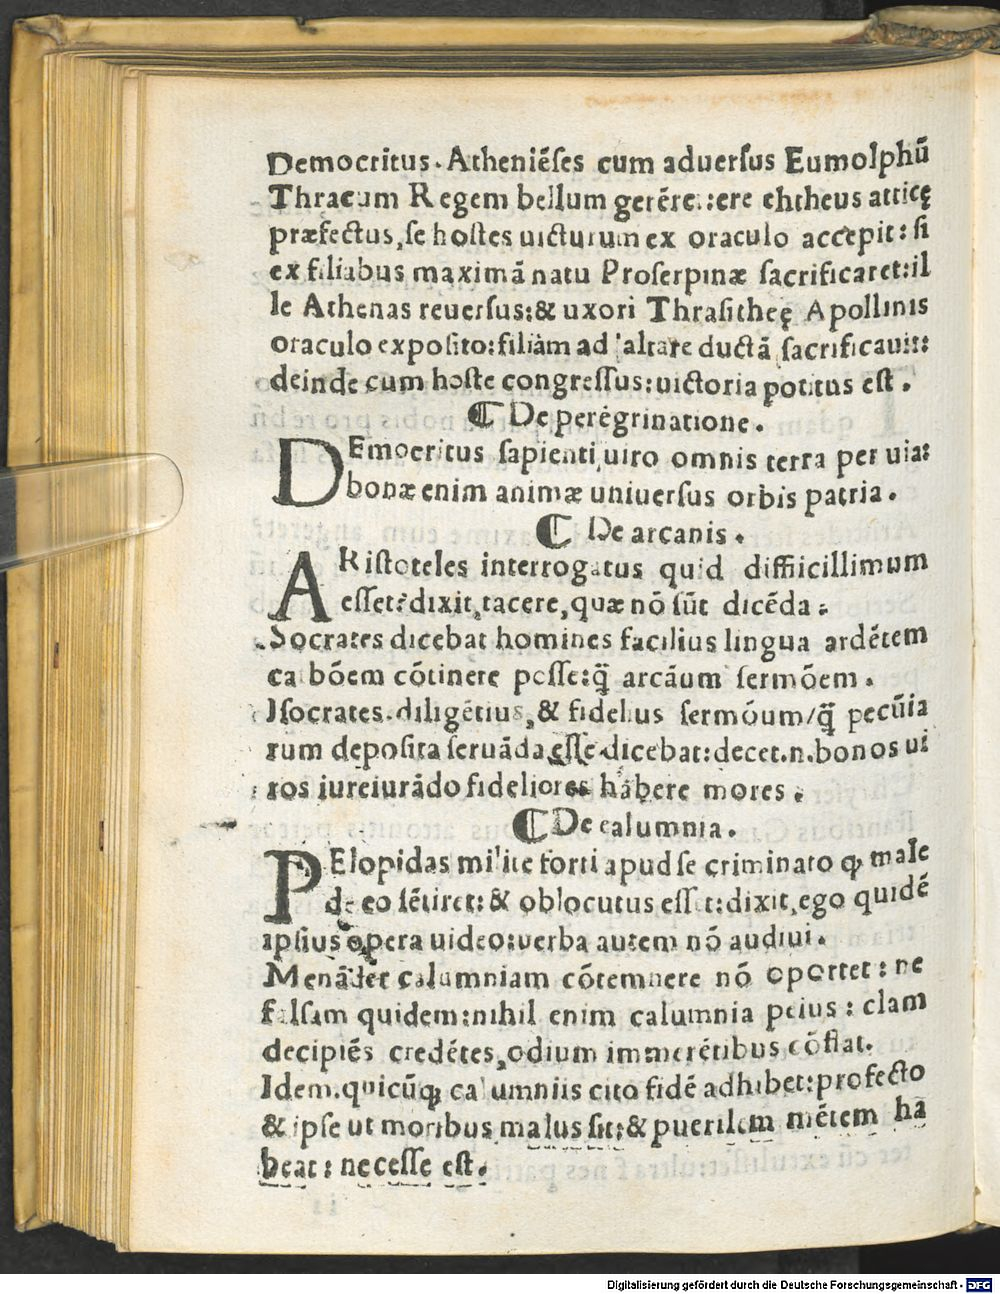 Democritus. Atheniẽſes cum aduerſus Eumolphũ
Thracum Regem bellum gerẽre ehtheus atticę
præfectus, ſe hoſtes uicturum ex oraculo accepit: ſi
ex filiabus maximã natu Proſerpinæ ſacrificaret: il
le Athenas reuerſus: & uxori Thraſitheę Apollinis
oraculo expoſito: filiam ad altare ductã ſacrificauit:
deinde cum hoſte congreſſus: uictoria potitus eſt.
⁋ De peregrinatione.
DEmocritus ſapienti uiro omnis terra per uia:
bonæ enim animæ uniuerſus orbis patria.
⁋ De arcanis.
ARiſtoteles interrogatus quid diffiicillimum
eſſet? dixit, tacere, quæ nõ ſũt dicẽda:
Socrates dicebat homines facilius lingua ardẽtem
ca bõem cõtinere poſſe: q̃ arcãum ſermõem.
Iſocrates. diligẽtius, & fidelius ſermõum/q̃ pecũia
rum depoſita ſeruãda eſſe dicebat: decet .n. bonos ui
ros iureiurãdo fideliores habere mores.
⁋ De calumnia.
PElopidas milite forti apud ſe criminato ꝙ male
de eo ſẽtiret: & oblocutus eſſet: dixit, ego quidẽ
ipſius opera uideo: uerba autem nõ audiui.
Menãder calumniam cõtemnere nõ oportet: ne
falſam quidem: nihil enim calumnia peius: clam
decipiẽs credẽtes, odium immerẽtibus cõflat.
Idem. quicũꝗ calumniis cito fidẽ adhibet: profecto
& ipſe ut moribus malus ſit: & puerilem mẽtem ha
beat: neceſſe eſt.
Digitalisierung gefördert durch die Deutsche Forschungsgemeinschaft - DFG